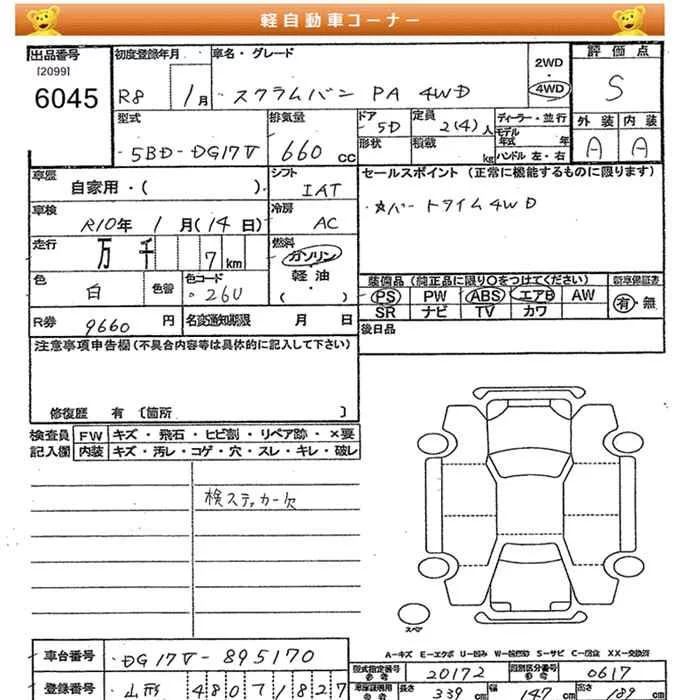 軽自動車コーナー
出品番号
[2099]
6045
初度登録年月
R8 1月
車名・グレード
スクラムバン PA 4WD
2WD
4WD
評価点
S
外装 内装
A A
型式
5BD-DG17V
排気量
660 cc
ドア
5D
定員
2(4)人
形状
積載
kg
ディーラー・並行
モデル年式 年
ハンドル 左・右
車歴
自家用・( )
シフト
IAT
セールスポイント(正常に機能するものに限ります)
パートタイム4WD
車検
R10年 1月(14日)
冷房
AC
走行
万 千 7 km
燃料
ガソリン
軽油
( )
色
白
色替
色コード
26U
装備品(純正品に限り〇をつけてください)
PS PW ABS エアB AW
SR ナビ TV カワ
新車保証書
有・無
R券 9660 円
名変通知期限 月 日
後日品
注意事項申告欄(不具合内容等は具体的に記入して下さい)
修復歴 有 〔箇所 〕
検査員
記入欄
FW キズ・飛石・ヒビ割・リペア跡・×要
内装 キズ・汚レ・コゲ・穴・スレ・キレ・破レ
検ステッカー欠
スペア
A-キズ E-エクボ U-凹み W-補修跡 S-サビ C-腐食 XX-交換済
車台番号
DG17V-895170
型式指定番号
参考
20172
類別区分番号
参考
0617
登録番号
山形 480 1827
長さ 339 cm
幅 147 cm
高さ 189 cm